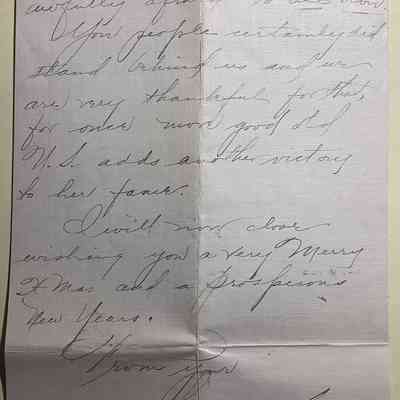 awfully afraid to
You people certainly did
stand behind us and we
are very thankful for that,
for once more good old
U.S. adds another victory
to her fame.
I will now close
wishing you a very Merry
X Mas and a Prosperous
New Years.
From your